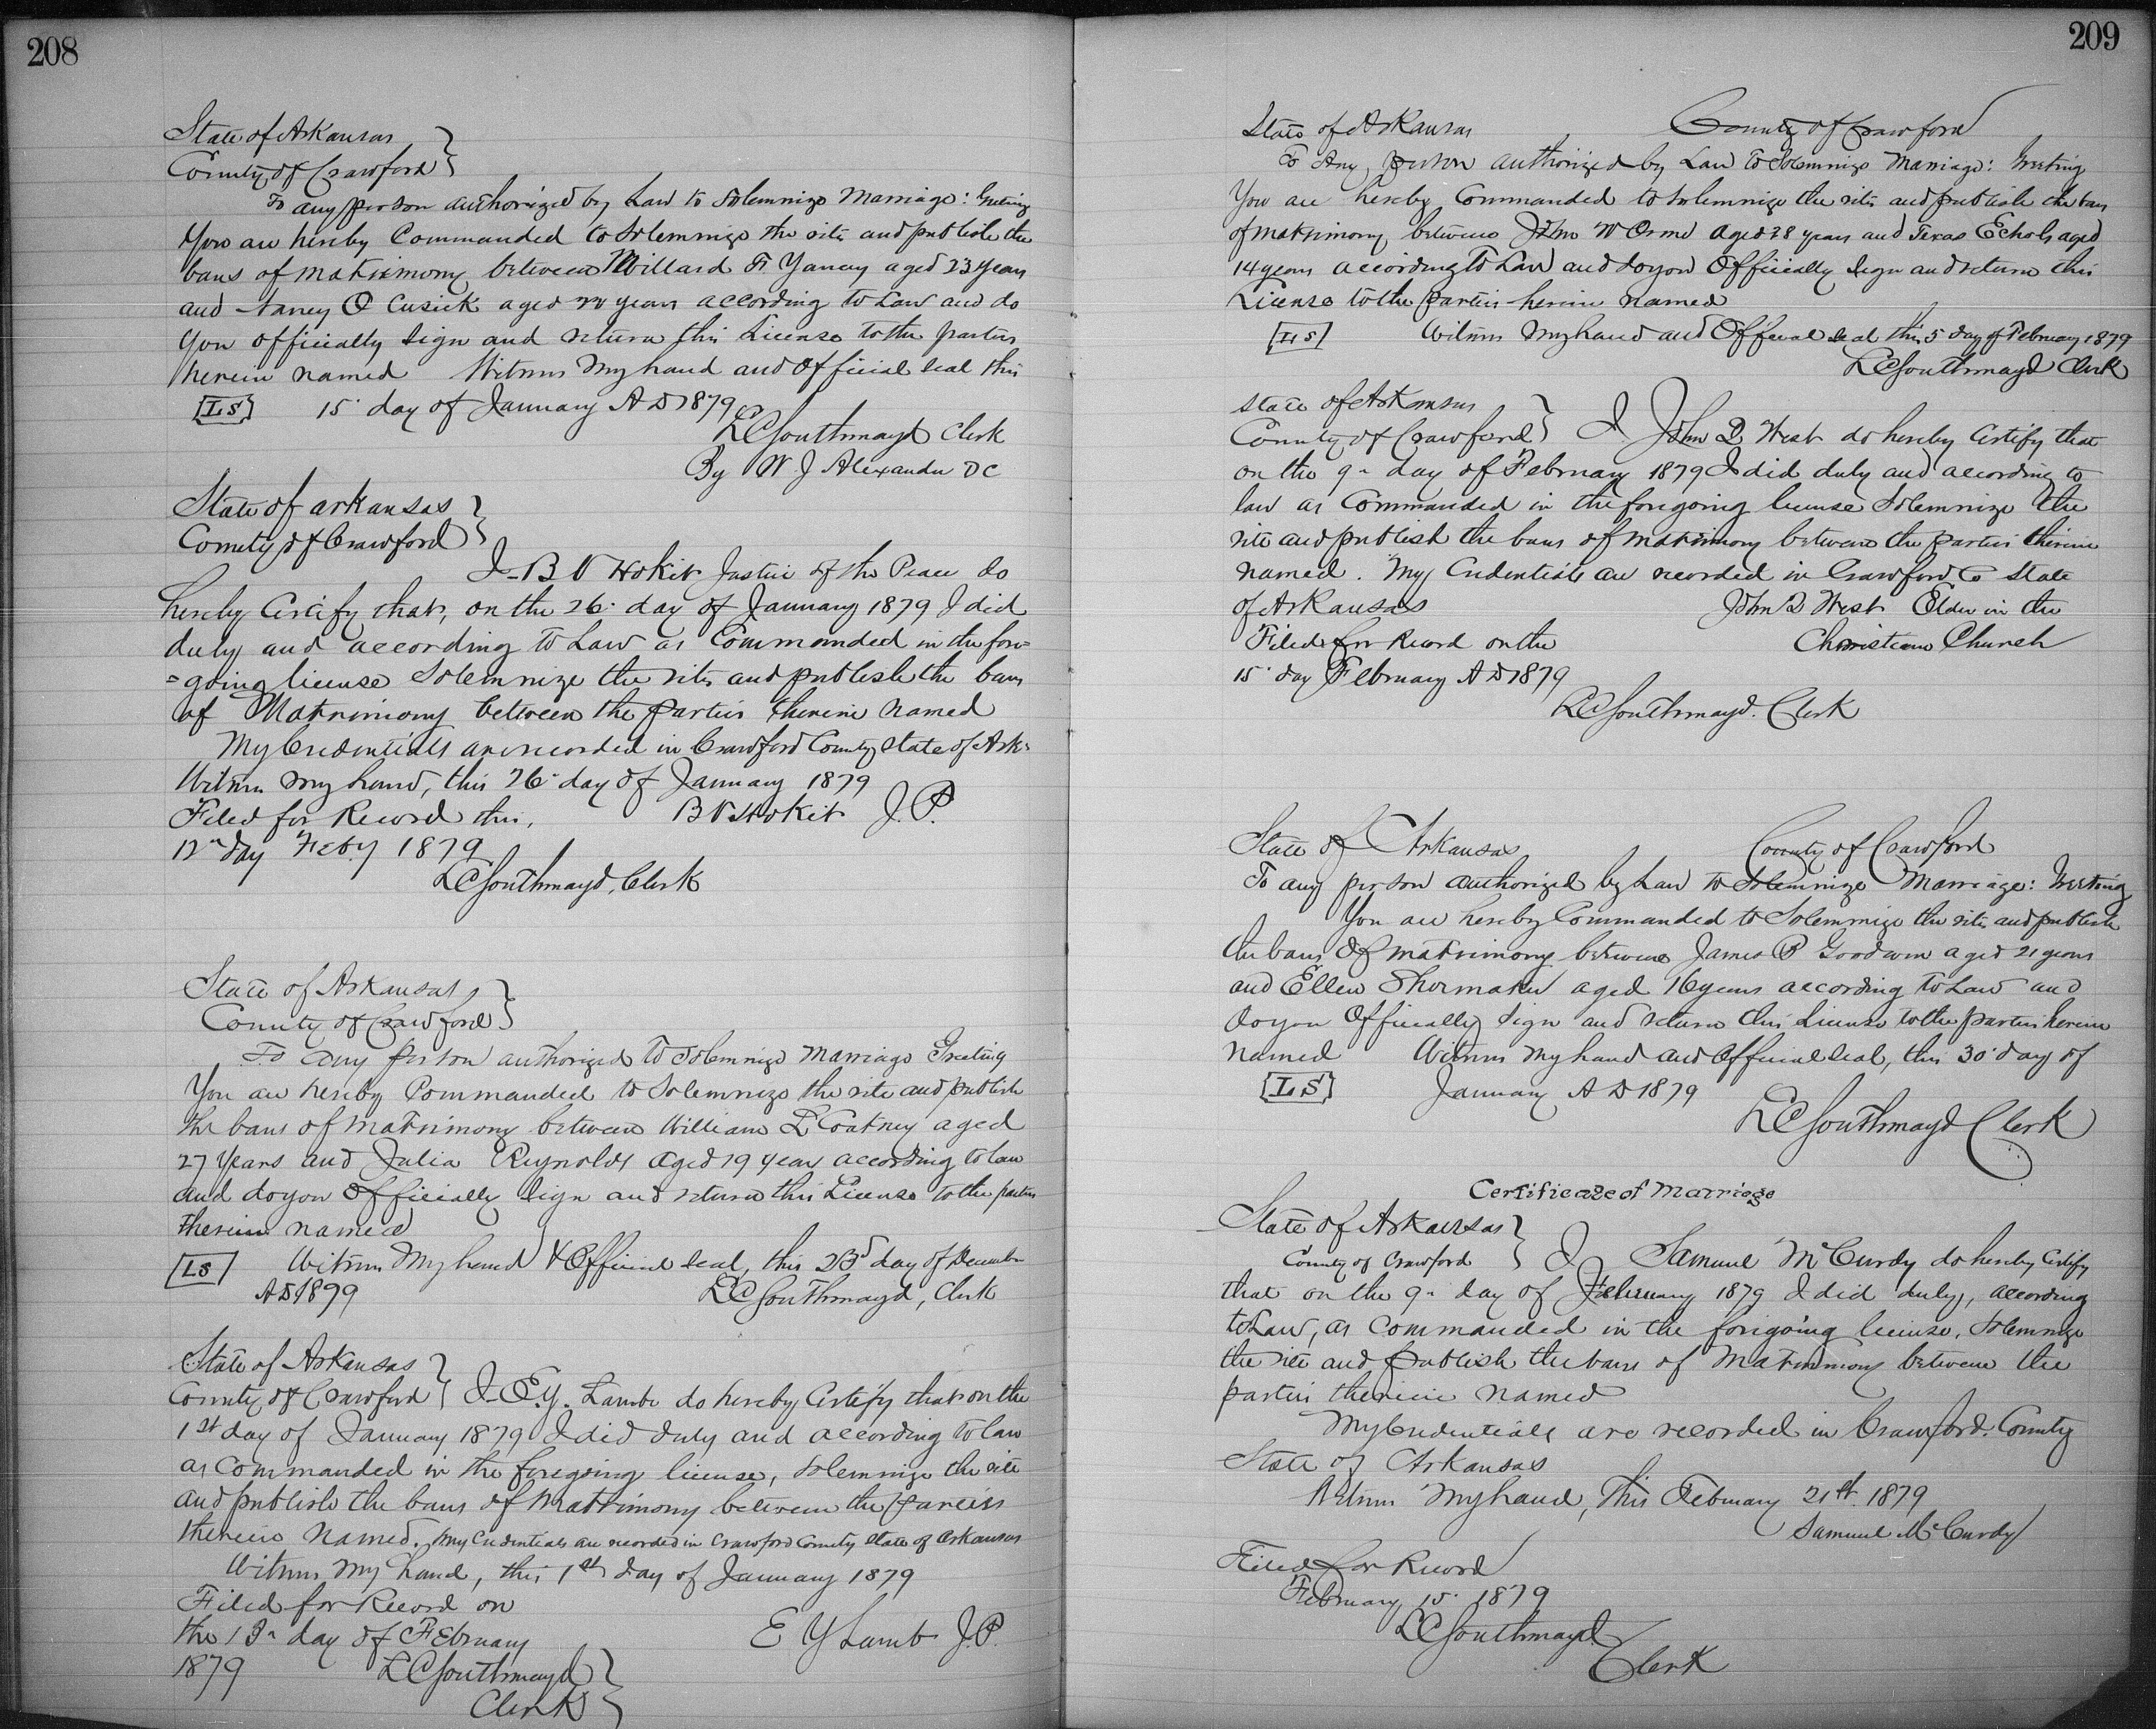 208
State of Arkansas
County of Crawford
To any person authorized by Law to Solemnize Marriage: Greeting
You are hereby Commanded to Solemnize the rite and publish the
bans of matrimony between Willard F Yancy aged 23 years
and Nancy O Cusick aged years according to Law and do
you officially sign and return this License to the parties
herein named Witness My hand and Official seal this
[LS] 15 day of January A D 1879
L C Southmayd Clerk
By W. J Alexander DC
State of arkansas
County of Crawford
I B V Hokit Justice of the Peace do
hereby Certify that, on the 26 day of January 1879 I did
duly and according to Law as Commanded in the fore=
=going license Solemnize the rites and publish the bans
of Matrimony between the parties therein named
My Credentials are recorded in Crawford County State of Ark.
Witness my hand, this 26 day of January 1879
Filed for Record this, B V Hokit J. P.
12 day Feby 1879
L C Southmayd, Clerk
State of Arkansas
County of Crawford
To any person authorized to Solemnize Marriage Greeting
You are hereby Commanded to Solemnize the rite and publish
the bans of matrimony between William L Coatney aged
27 years and Julia Reynolds aged 19 year according to law
and do you Officially sign and return this License to the parties
therein named
[LS] Witness My hand & Official seal, this 23d day of December
A D 1899 L C Southmayd, Clerk
State of Arkansas
County of Crawford I E. Y. Lamb do hereby Certify that on the
1st day of January 1879 I did duly and according to law
as Commanded in the foregoing license, Solemnize the rite
and publish the bans of Matrimony between the parties
therein Named. My Credentials are recorded in Crawford County State of Arkansas
Witness My hand, this 1st day of January 1879
Filed for Record on
the 13 day of February E Y Lamb J. P.
1879 L C Southmayd
Clerk
209
State of Arkansas County of Crawford
To Any person authorized by Law to Solemnize Marriage: Greeting
You are hereby Commanded to Solemnize the rite and publish the bans
of matrimony between John W Orme aged 28 years and Texas Echols aged
14 years according to Law and do you Officially sign and return this
License to the parties herein named
[LS] Witness My hand and Official seal this 5 day of February 1879
L C Southmayd Clerk
State of Arkansas
County of Crawford I John Q West do hereby Certify that
on the 9 day of February 1879 I did duly and according to
law as Commanded in the foregoing license Solemnize the
rite and publish the bans of Matrimony between the parties therein
named. My Credentials are recorded in Crawford Co State
of Arkansas John Q West Elder in the
Filed for Record on the Christian Church
15 day February A D 1879
L C Southmayd. Clerk
State of Arkansas County of Crawford
To any person authorized by Law to Solemnize Marriage: Greeting
You are hereby Commanded to Solemnize the rite and publish
the bans of matrimony between James B Goodwin aged 21 years
and Ellen Shoemaker aged 16 years according to Law and
do you Officially sign and return this License to the parties herein
named Witness My hand and Official seal, this 30 day of
[LS] January A D 1879
L C Southmayd Clerk
Certificate of Marriage
State of Arkansas
County of Crawford I Samuel McCurdy do hereby Certify
that on the 9 day of February 1879 I did duly, according
to Law, as Commanded in the foregoing license, Solemnize
the rite and publish the bans of Matrimony between the
parties therein named
My Credentials are recorded in Crawford County
State of Arkansas
Witness My hand, This February 21st. 1879
Samuel McCurdy
Filed for Record
February 15 1879
L C Southmayd
Clerk